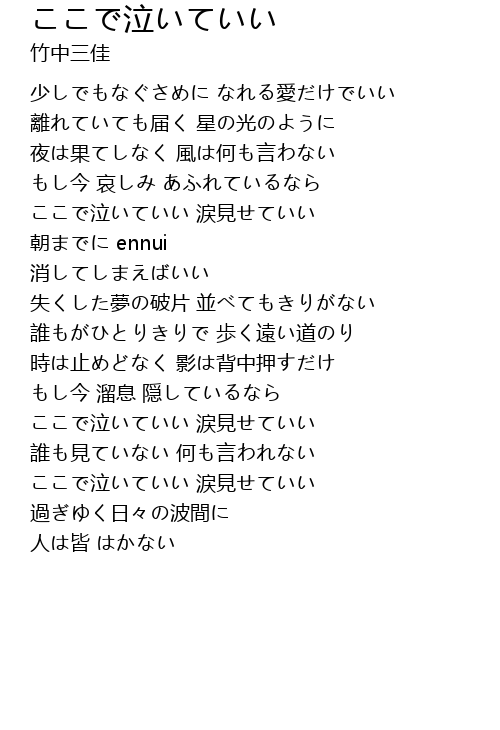 ここで泣いていい
竹中三佳
少しでもなぐさめに なれる愛だけでいい
離れていても届く 星の光のように
夜は果てしなく 風は何も言わない
もし今 哀しみ あふれているなら
ここで泣いていい 涙見せていい
朝までに ennui
消してしまえばいい
失くした夢の破片 並べてもきりがない
誰もがひとりきりで 歩く遠い道のり
時は止めどなく 影は背中押すだけ
もし今 溜息 隠しているなら
ここで泣いていい 涙見せていい
誰も見ていない 何も言われない
ここで泣いていい 涙見せていい
過ぎゆく日々の波間に
人は皆 はかない